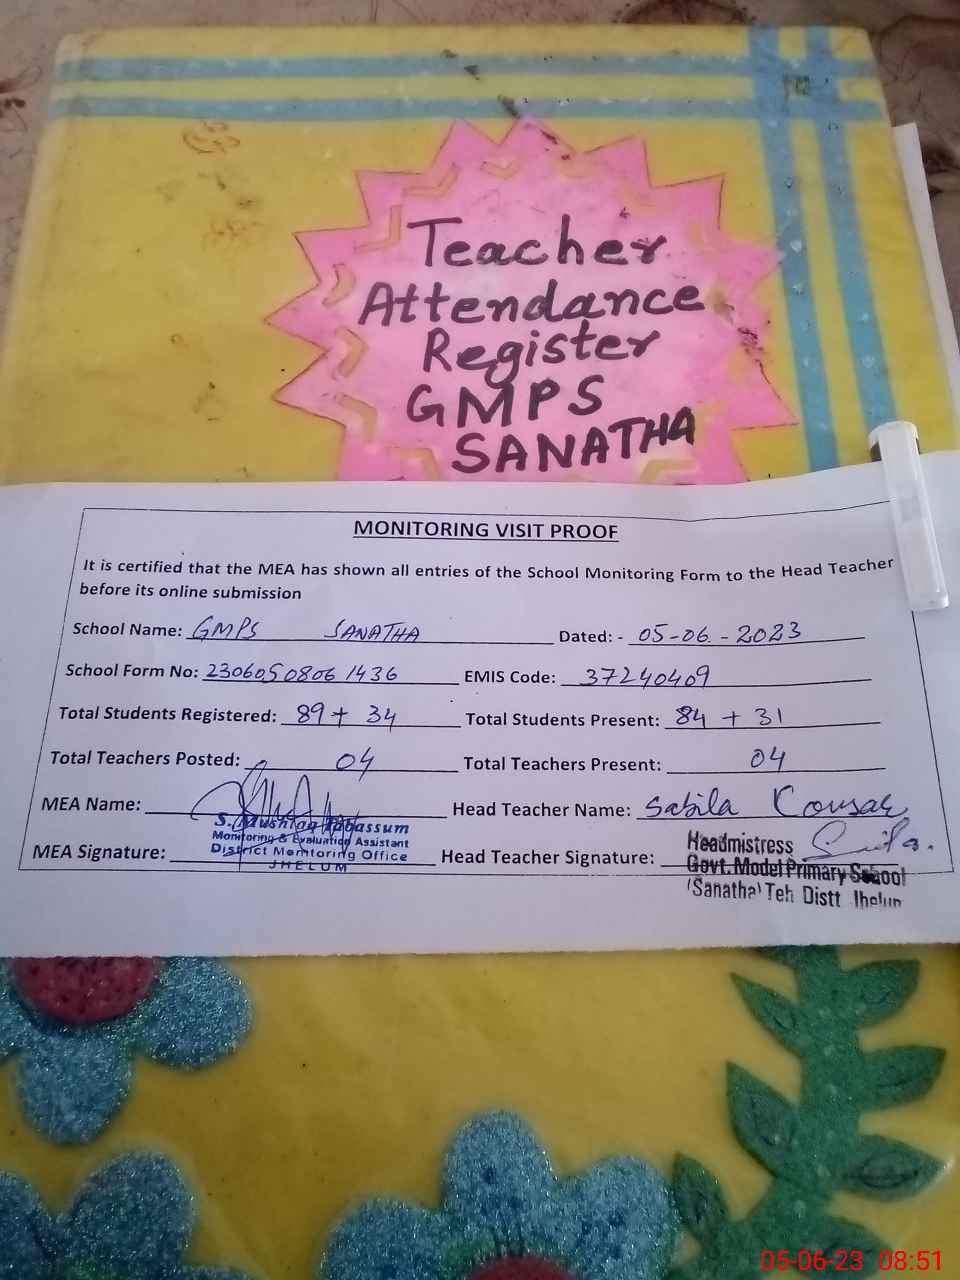 Teacher
Attendance
Register
GMPS
SANATHA
MONITORING VISIT PROOF
It is certified that the MEA has shown all entries of the School Monitoring Form to the Head Teacher
before its online submission
School Name: GMPS SANATHA Dated: - 05-06-2023
School Form No: 23060508061436 EMIS Code: 37240409
Total Students Registered: 89 + 34 Total Students Present: 84 + 31
Total Teachers Posted: 04 Total Teachers Present: 04
MEA Name: Head Teacher Name: Sabila Kousar
S. Mushtaq Tabassum
Monitoring & Evaluation Assistant
District Monitoring Office
JHELUM
MEA Signature: Head Teacher Signature:
Headmistress
Govt. Model Primary School
(Sanatha) Teh Distt Jhelum
05-06-23 08:51